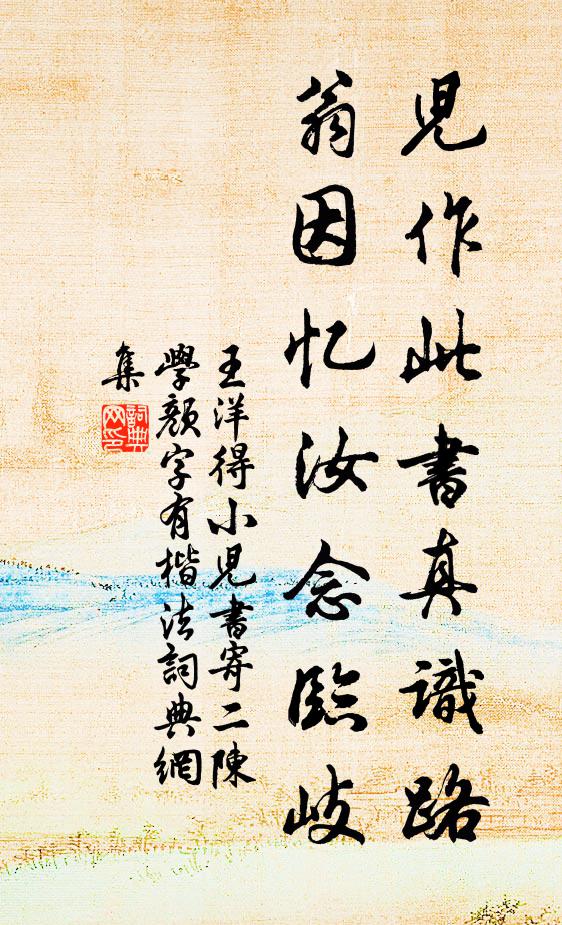 兒作此書真識路
翁因忆汝念臨岐
王洋得小兒書寄二陳
學顏字有楷法詞典網
集
詞典
网印